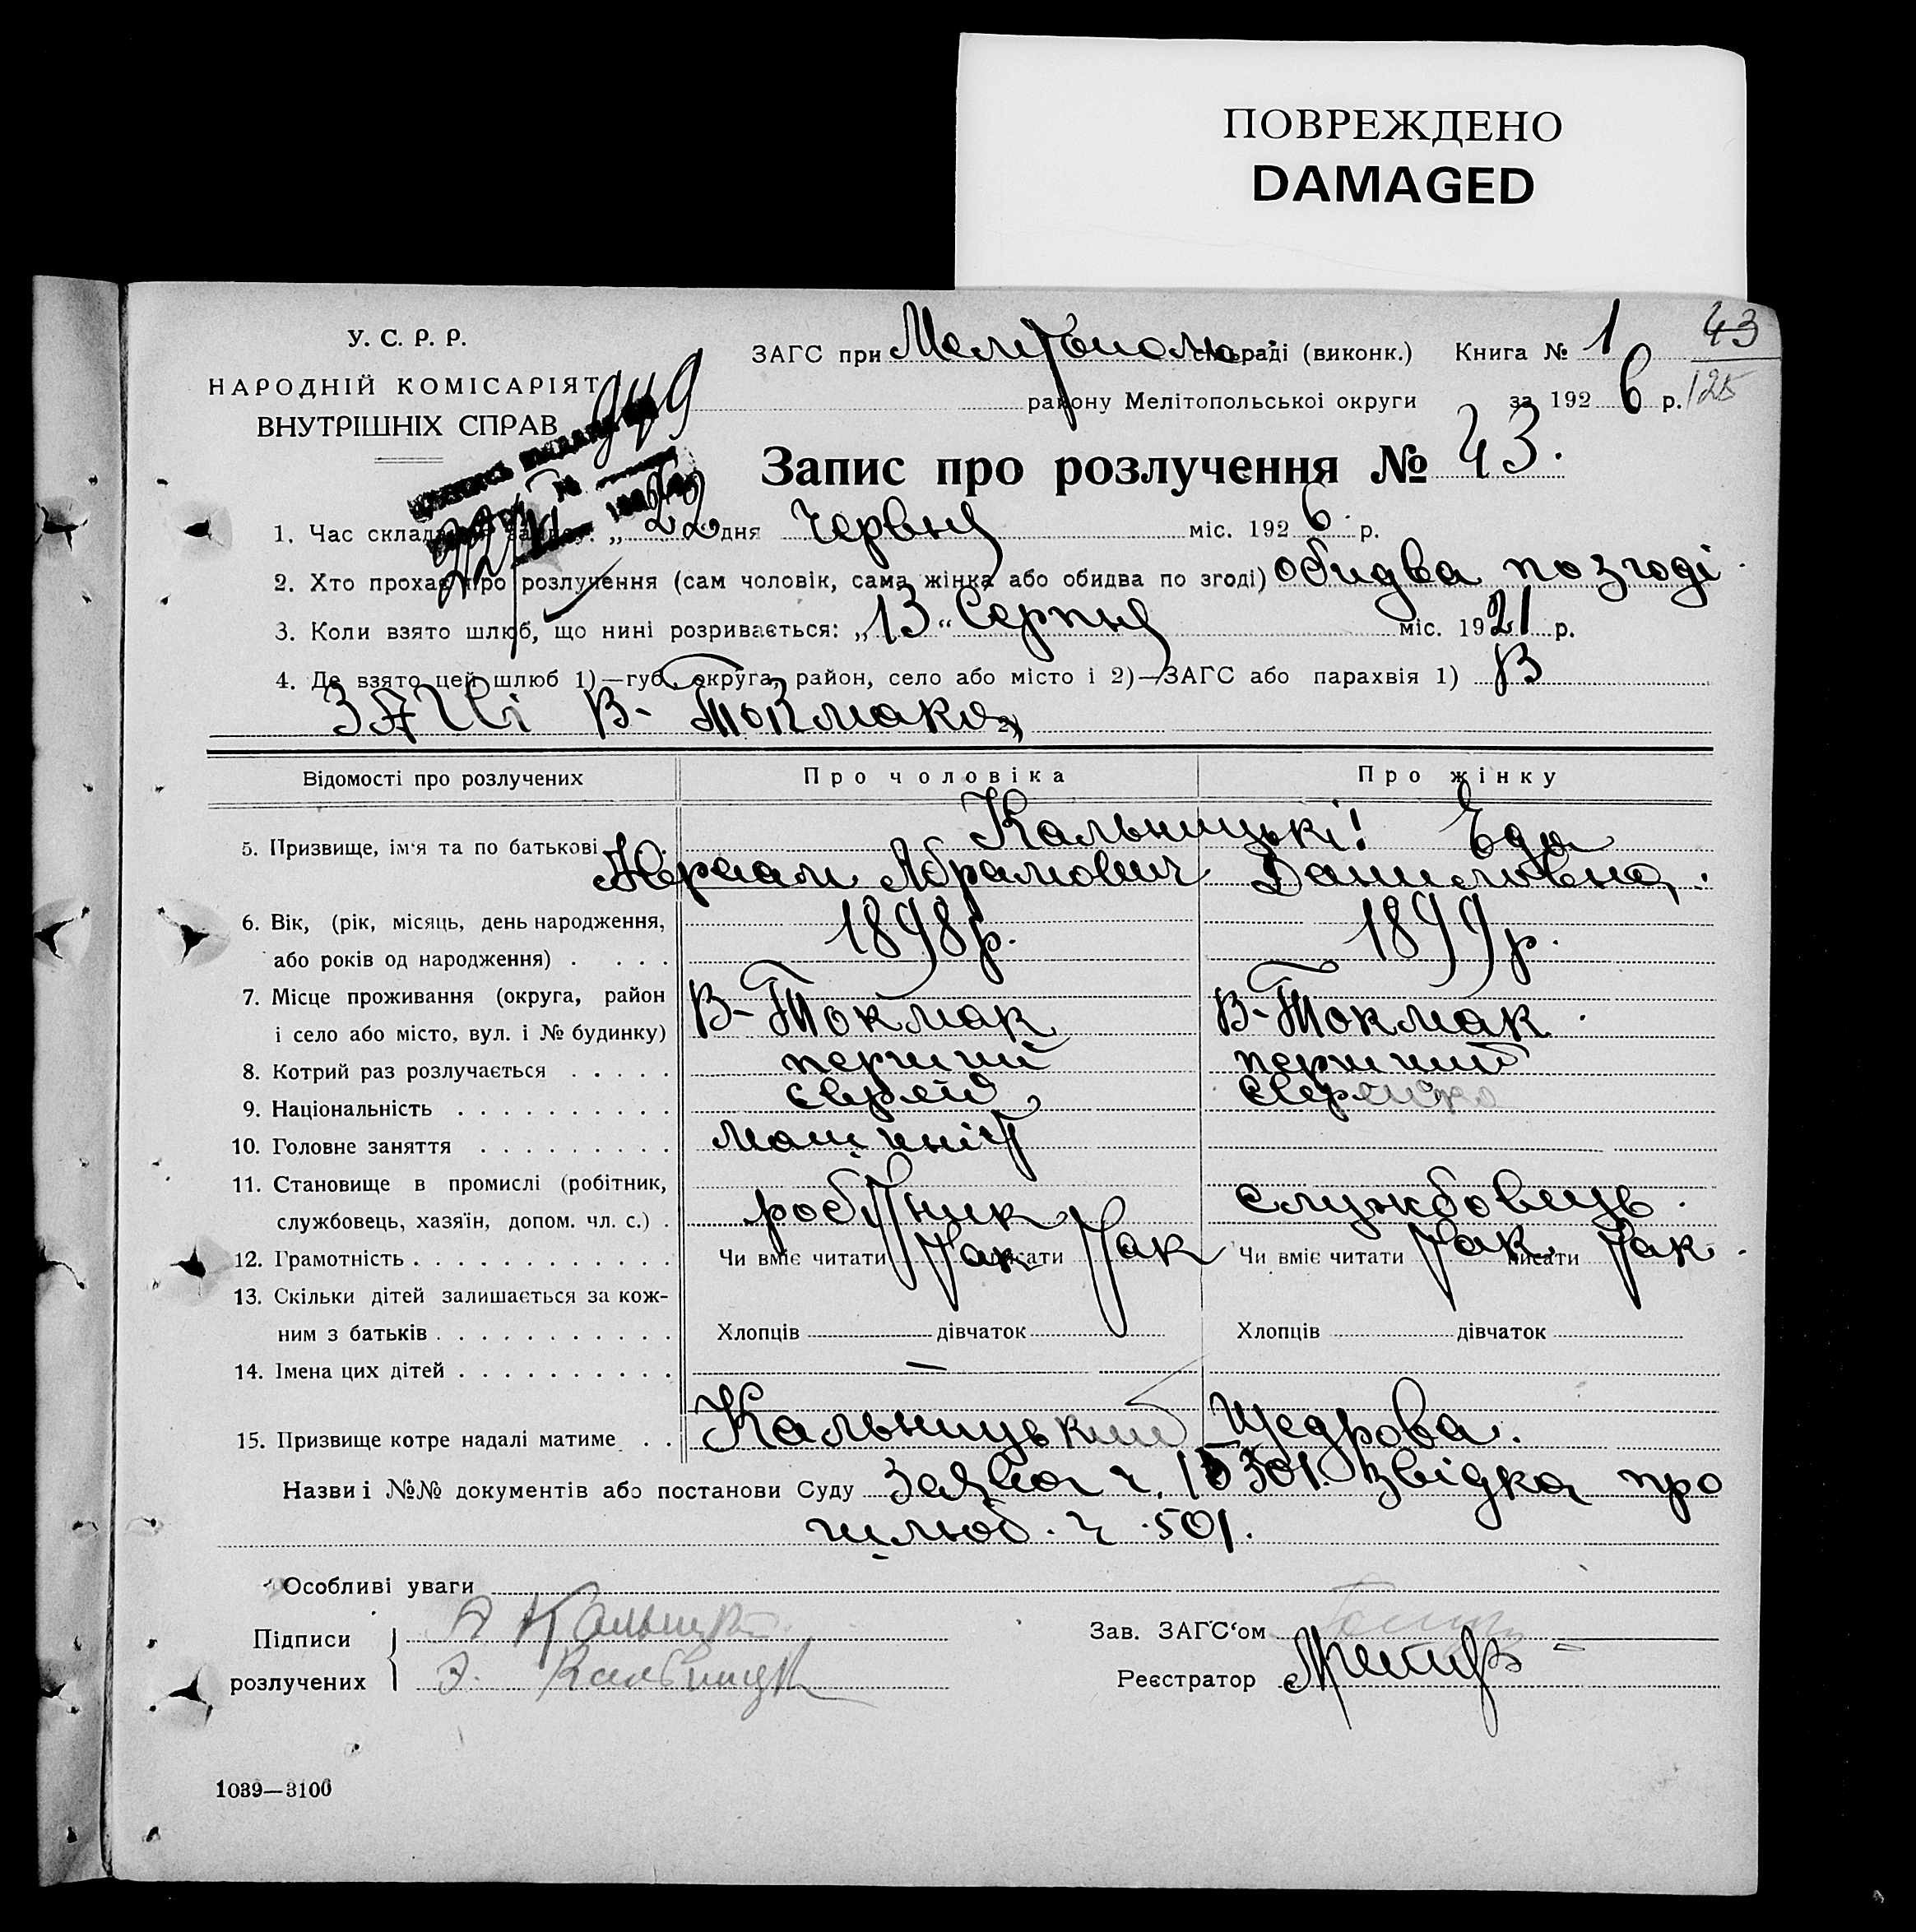 ПОВРЕЖДЕНО
DAMAGED
У. С. Р. Р.
НАРОДНІЙ КОМІСАРІЯТ
ВНУТРІШНІХ СПРАВ
ЗАГС при раді (виконк.) Книга № 1 43
району Мелітопольської округи за 1926 р. 125
949
Запис про розлучення № 43.
1. Час складання запису: „ 22 дня Червня міс. 1926 р.
2. Хто прохає про розлучення (сам чоловік, сама жінка або обидва по згоді) обидва по згоді
3. Коли взято шлюб, що нині розривається: „13“ Серпня міс. 1921 р.
4. Де взято цей шлюб 1)—губ., округа, район, село або місто і 2)—ЗАГС або парахвія 1) В
ЗАГСі В-Токмака 2)
Відомості про розлучених Про чоловіка Про жінку
5. Призвище, ім‘я та по батькові Кальницькі! Еда
Абрамович Даниловна
6. Вік, (рік, місяць, день народження, 1898р. 1899р.
або років од народження) . . . .
7. Місце проживання (округа, район В-Токмак В-Токмак
і село або місто, вул. і № будинку)
8. Котрий раз розлучається . . . . . перший перший
9. Національність . . . . . . . . . . єврей єврейка
10. Головне заняття . . . . . . . . . машиніст
11. Становище в промислі (робітник, робітник службовець
службовець, хазяїн, допом. чл. с.) .
12. Грамотність . . . . . . . . . . . . Чи вміє читати Так писати Так Чи вміє читати Так писати Так
13. Скільки дітей залишається за кож-
ним з батьків . . . . . . . . . . . Хлопців дівчаток Хлопців дівчаток
14. Імена цих дітей . . . . . . . . . . —
15. Призвище котре надалі матиме . . Кальницький Щедрова.
Назви і №№ документів або постанови Суду Заява ч. звідка про
шлюб. ч. 501.
Особливі уваги
Підписи А Зав. ЗАГС‘ом
розлучених Э. Реєстратор
1039—3100